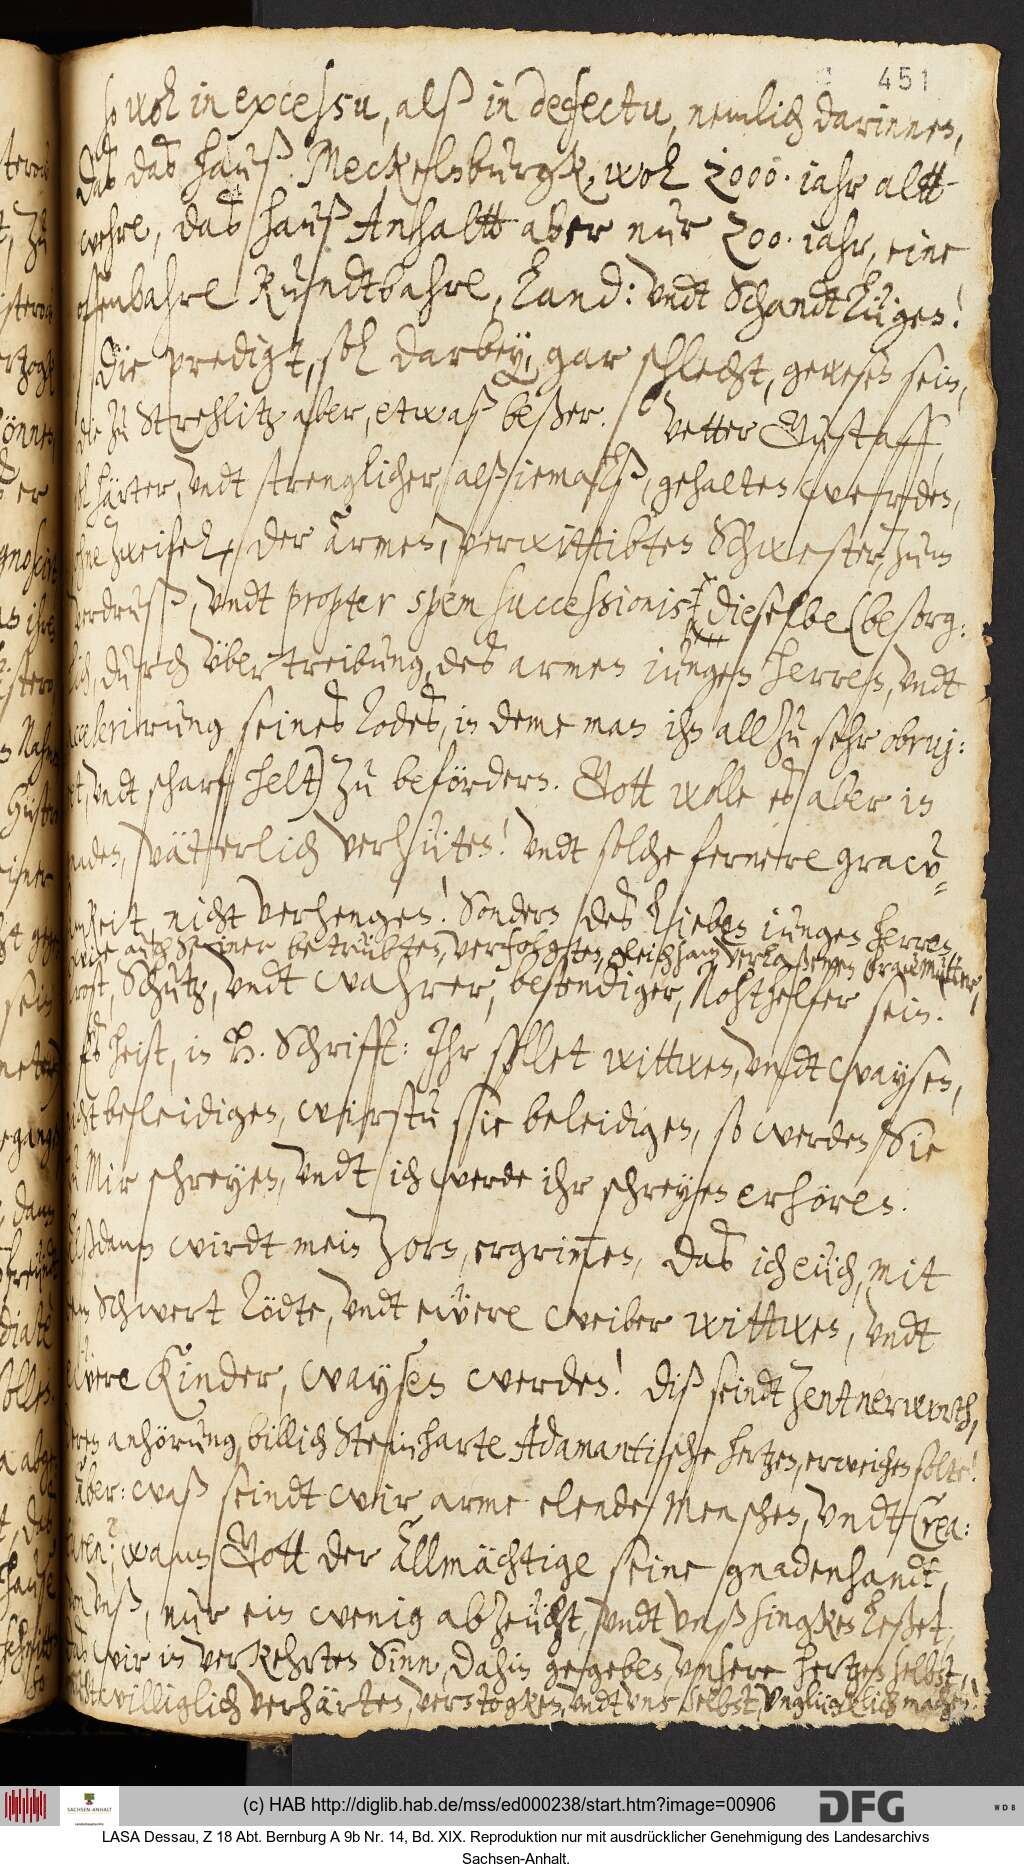 451
so wol in excessu, alß in defectu, nemlich darinnen,
Das das hauß Meckelnburgk, wol 2000 iahr altt
wehre, das hauß Anhaltt aber nur 200 iahr, eine
offenbahre Rundtbahre, Land: vndt Schandt Lügen!
Die predigt, sol darbey, gar schlecht, gewesen sein,
die zu Strehlitz aber, etwaß beßer. Vetter Gustaff,
sol härter, vndt strenglicher, alß iemalß, gehalten werden,
ohne zweifel, der armen, verwittibten Schwester, zum
verdruß, vndt propter spem successionis, dieselbe (besorg:
lich, durch übertreibung, des armen iungen herren, vndt
accelerirung seines Todes, in deme man ihn allzu sehr obruj:
ret, vndt scharff helt) zu befördern. Gott wolle es aber in
gnaden, vätterlich verhüten! vndt solche fernere
nicht verhengen! Sondern des Lieben iungen herren,
wie auch seiner betrübten, verfolgten, gleichsam verlaßenen fraw Mutter,
Trost, Schutz, vndt wahrer, bestendiger, Nohthelfer sein.
Es heist, in h. Schrifft: Ihr sollet wittwen, vndt waysen,
nicht beleidigen, wirstu sie beleidigen, so werden Sie
zu Mir schreyen, vndt ich werde ihr schreyen erhören.
Alßdann wirdt mein Zorn, ergrimmen, das ich euch, mit
dem Schwert Tödte, vndt ewere weiber wittwen, vndt
ewere Kinder, waysen werden! Diß seindt Zentnerworth,
deren anhörung, billich Steinharte Adamantische hertzen, erweichen solte!
Aber: waß seindt wir arme elende Menschen, vndt Crea:
turen? wann Gott der Allmächtige seine gnadenhandt,
von vnß, nur ein wenig abzeücht, vndt vnß hingken Leßet,
das wir in verkehrten Sinn, dahin gegeben, vnsere hertzen selbst,
muhtwilliglich verhärten, verstogken, vndt vns selbst, vnglücklich machen!
(c) HAB http://diglib.hab.de/mss/ed000238/start.htm?image=00906
SACHSEN-ANHALT
DFG
WDB
LASA Dessau, Z 18 Abt. Bernburg A 9b Nr. 14, Bd. XIX. Reproduktion nur mit ausdrücklicher Genehmigung des Landesarchivs
Sachsen-Anhalt.